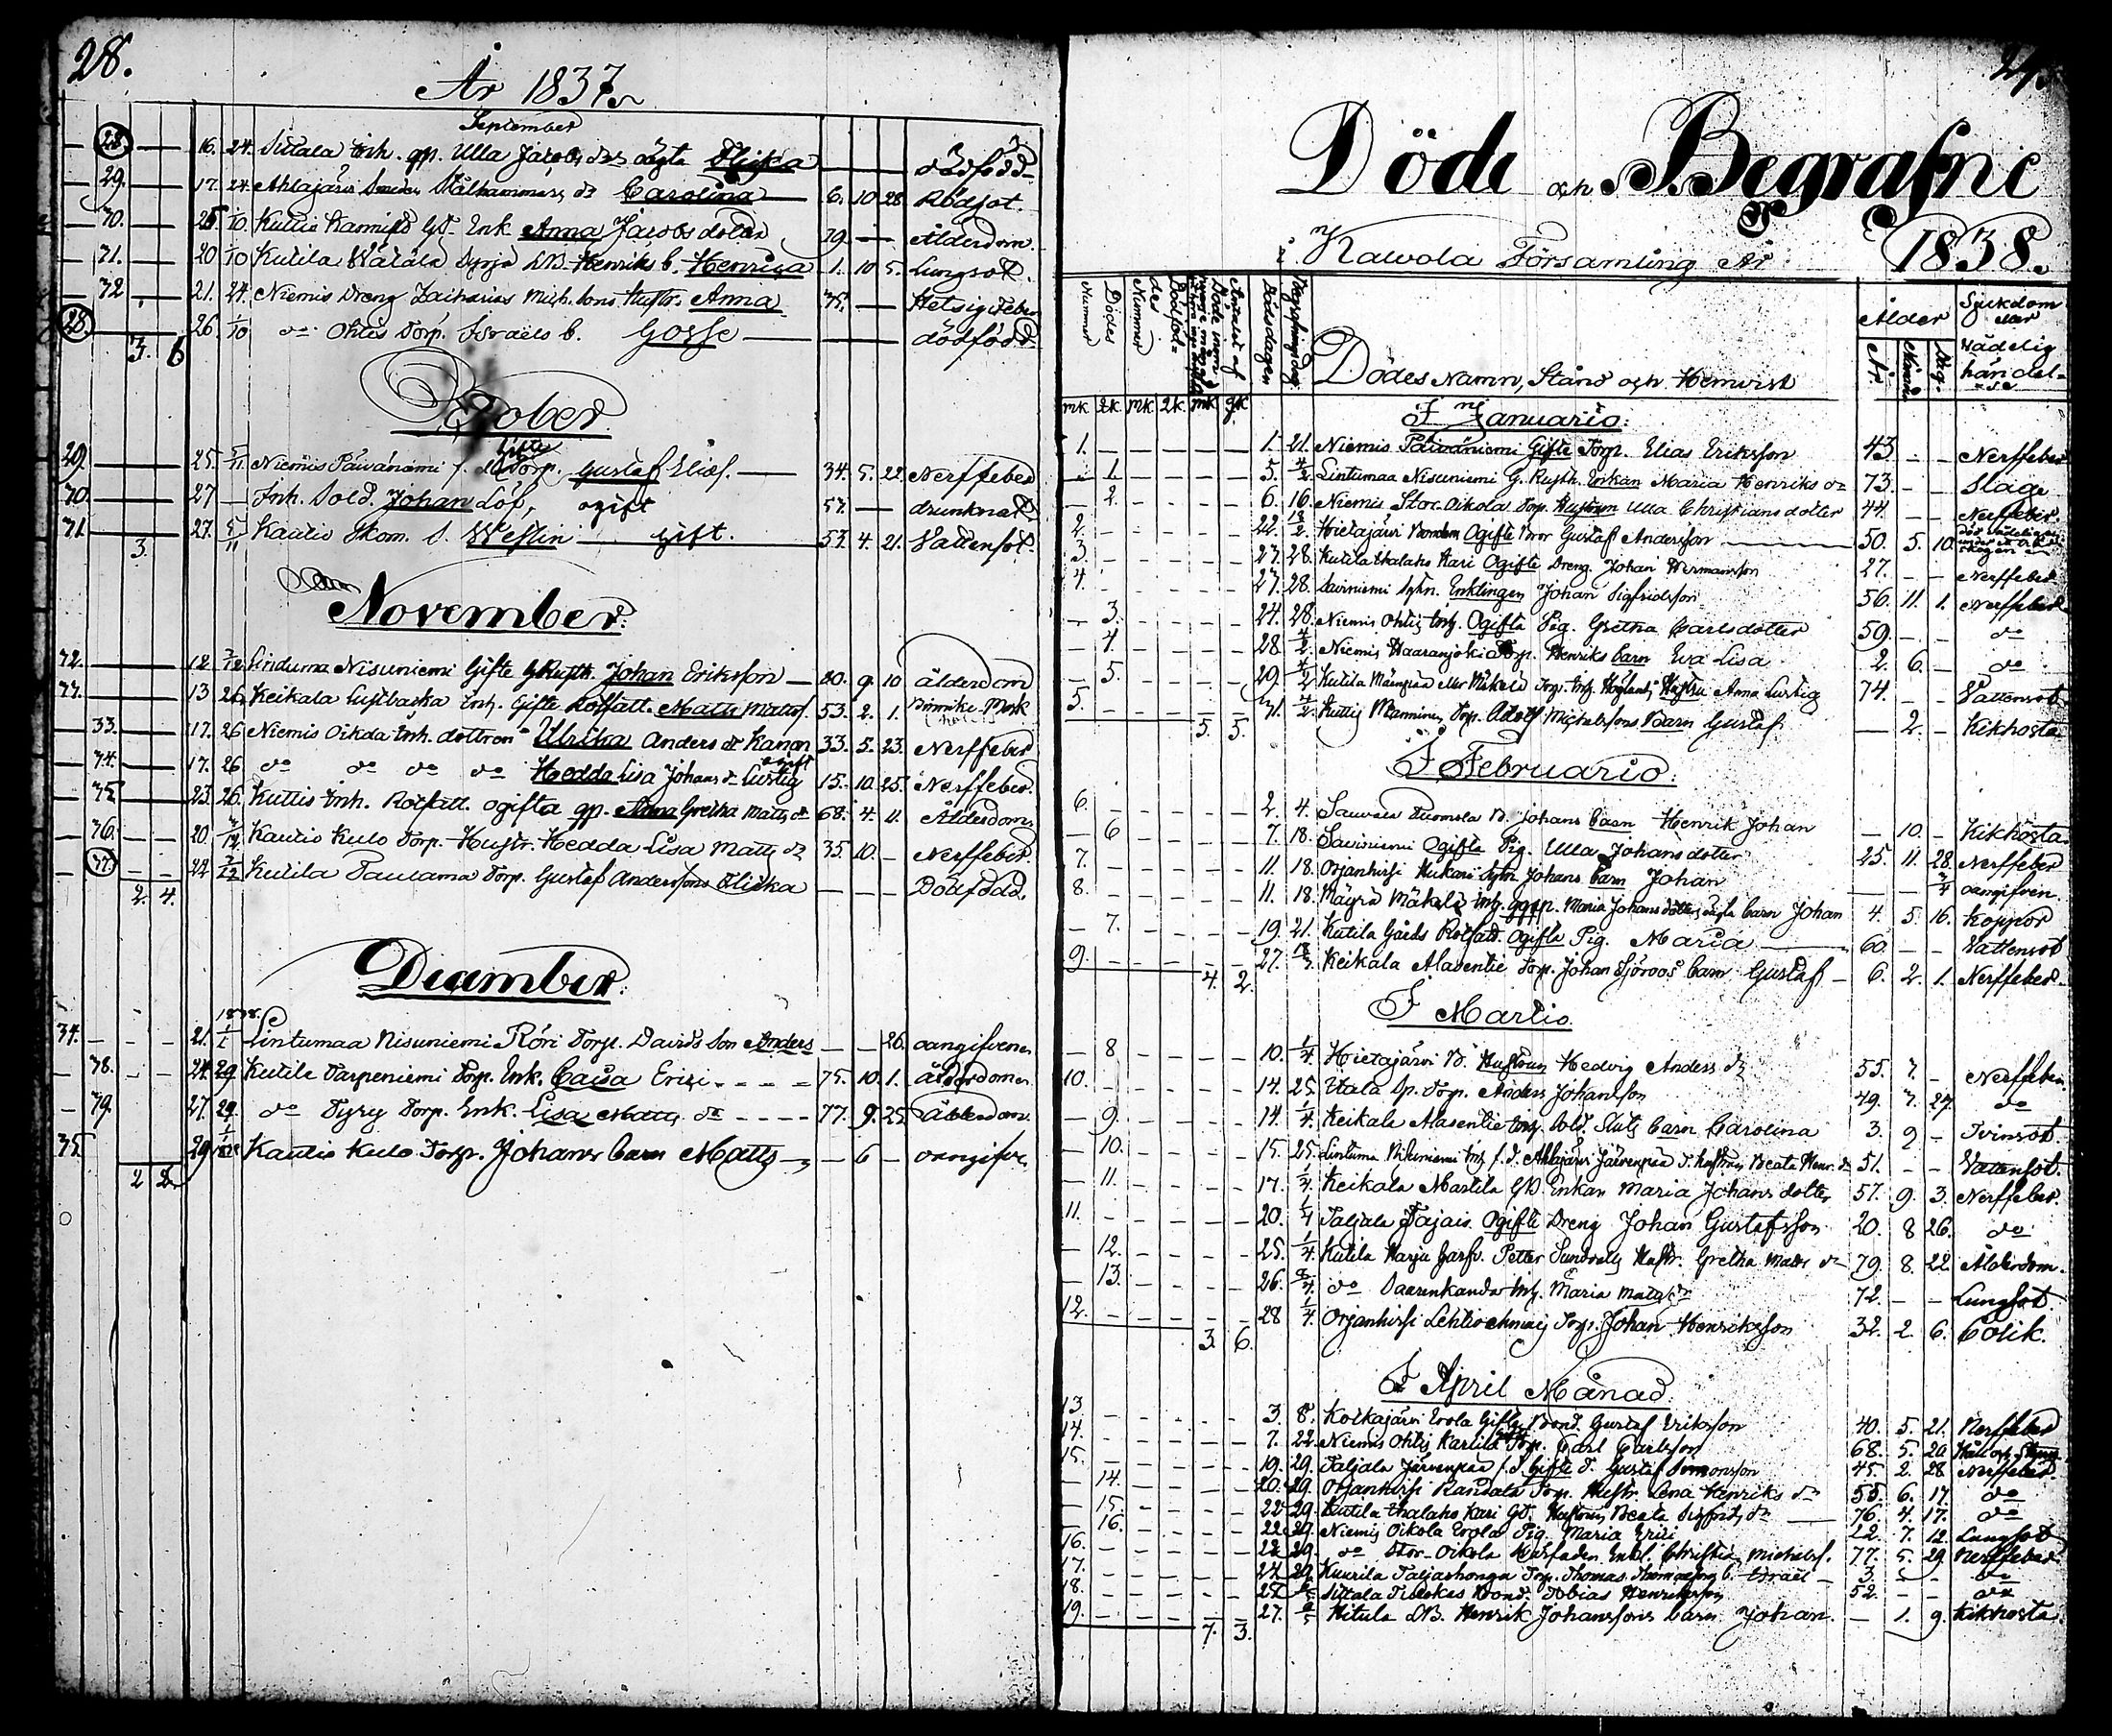 28.
År 1837.
September
28. 16. 24. Sittala Inh. qp. Ulla Jacobs drs oägta Flicka dödfödd
29. 17. 24. Ahlajärvi Smeden Stålhammars dr Carolina 6. 10 28 Rödsot.
70. 25 1/10. Kuttis GB. Enk. Anna Jacobsdotter 79. Ålderdom.
71. 20 1/10 Kutila Wätälä Dyrjä LB. Henriks b. Henrica 1. 10 5. Lungsot.
72 21. 24. Niemis Dreng Zacharias Mich.sons Hustr. Anna 75. Hetsig Feber
28. 26. 1/10 do Ohtis Torp. Israels b. Gosse dödfödd
3. 6
October
29. 25. 5/11 Niemis Päiväniemi f. d. Gifte Torp. Gustaf Eliæs. 34. 5. 22. Nerffeber
70. 27 Inh. Sold. Johan Löf, ogift 57. drunknat
71. 27. 5/11 Kautio Skom. S. Westlin gift. 57. 4. 21. Vattensot.
3.
November.
72. 12 3/12 Linduma Nisuniemi Gifte G Rusth. Johan Eriksson 80. 9. 10 ålderdom
77. 13 26. Keikala Lustbacka Inh. Gifte Rotfatt. Matts Mattss. 53. 2. 1.
33. 17. 26 Niemis Oikola Inh. dottren Ulrika Anders dr Kanon 33. 5. 23. Nerffeber
74. 17. 26 do do do do Hedda Lisa Johans dr Lustig ogift 15. 10. 25. Nerffeber.
75 23. 26. Kuttis Inh. Rotfatt. ogifta qp. Anna Gretha Matts dr 68. 4. 11. Ålderdom
76. 20. 3/12 Kautio Kulo Torp. Hustr. Hedda Lisa Matts dr 35. 10. Nerffeber.
77. 24 3/12 Kutila Paulama Torp. Gustaf Anderssons Flicka Dödfödd.
2. 4.
December.
1838.
34. 21. 1/1 Lintumaa Nisuniemi Röri Torp. Davids Son Anders 26. oangifven
78. 24. 29 Kutila Tarpeniemi Torp. Enk. Caisa Erici 75. 10. 1. ålderdom
79. 27. 29. do Tyry Torp. Enk. Lisa Matts dr 77. 9. 25 Ålderdom.
75 29 1/1 1838 Kautio Kulo Torp. Johans barn Matts 6 oangifv.
2 2
Döde och Begrafne
i Kalvola Församling År 1838.
Dödes Nummer
Dödföddes Nummer
Dödsdagen
Begrafningsdag
Dödes Namn, Stånd och Hemvist
Ålder
År Månad Dag.
Sjukdom eller vådelig händelse
mk 2k. mk 2k. mk qk.
I Januario:
1. 1. 21. Niemis Päiväniemi Gifte Torp. Elias Eriksson 43 Nerffeber
1. 5. 4/2 Lintumaa Nisuniemi G. Rusth. Enkan Maria Henriks dr 73. Slag
2. 6. 16. Niemis Stor Oikola Torp. Hustrun Ulla Christians dotter 44. Nerffeber.
2. 22. 18/2 Hietajärvi Bonden Ogifte Bror Gustaf Andersson 50. 5. 10.
3. 27. 28. Kutila Uhalaho Kari Ogifte Dreng Johan Hermansson 27. Nerffeber
4. 27. 28. Saviniemi Sytn. Enklingen Johan Sigfridsson 56. 11. 1. Nerffeber
3. 24. 28. Niemis Ohtis Inh. Ogifta Pig. Gretha Carlsdotter 59. do
4. 28 4/2 Niemis Haaranjoki Torp. Henriks barn Eva Lisa 2. 6. do
5. 29 4/2 Kutila Mäenpää eller Mäkelä Torp. Inh. Höglunds Hustru Anna Lustig 74. Vattensot
5. 31. 4/2 Kuttis Manninen Torp. Adolf Michelssons Barn Gustaf 2. Kikhosta
5. 5.
I Februario.
6. 2. 4. Sauvala Tuomola B. Johans barn Henrik Johan 10. Kikhosta
6 7. 18. Saviniemi Ogifta Pig. Ulla Johansdotter 25. 11. 28. Nerffeber
7. 11. 18. Orjanhirsi Hukari Sytn. Johans barn Johan 3/4 oangifven.
8. 11. 18. Mäyrä Mäkelä Inh. Maria Johansdotters oägta barn Johan 4. 5 16. Koppor
7. 19. 21. Kutila Gårds Rotfatt. Ogifta Pig. Maria 60. Vattensot
9. 27. 18/3 Keikala Alasentie Torp. Johan Sjöroos barn Gustaf 6. 2. 1. Nerffeber.
4. 2.
I Martio.
8 10. 1/4. Hietajärvi B. Hustrun Hedvig Anders dr 55. 7 Nerffeber
10. 14. 25. Utala Sp. Torp. Anders Johansson 49. 7. 27. do
9. 14. 1/4. Keikala Alasentie Inh. Sold. Sluts barn Carolina 3. 9 Tvinsot.
10. 15. 25. Lintuma Nisuniemi Inh. f. d. Ahlajärvi Järvenpää T. hustrun Beata Henr. dr 51. Vattensot.
11. 17. 1/4. Keikala Martila GB. Enkan Maria Johans dotter 57. 9. 3. Nerffeber.
11. 20. 1/4 Taljala Jajais. Ogifte Dreng Johan Gustafsson 20. 8 26. do
12. 25. 1/4. Kutila Harju Garfv. Petter Sundvalls Hustr. Gretha Matts dr 79. 8. 22. Ålderdom.
13. 26. 8/4. do Saarenkanda Inh. Maria Matts dr 72. Lungsot.
12. 28 1/4. Orjanhirsi Lehtiochmaij Torp. Johan Henriksson 32. 2. 6. Colik.
3. 6.
I April Månad.
13 3. 8. Kotkajärvi Erola Gifte Bond. Gustaf Eriksson 40. 5. 21. Nerffeber
14. 7. 22. Niemis Ohtis Karlild Torp. Carl Carlsson 68. 5. 20
15. 19. 29. Taljala Järvenpää f. d. Gifte T. Gustaf Simonsson 45. 2. 28 Nerffeber
14. 20. 29. Orjanhirsi Randala Torp. Hustr. Lena Henriks dr 55. 6. 17. do
15. 22. 29. Kutila Uhalaho Kari GB. Hustrun Beata Sigfrids dr 76. 4. 17. do
16. 22. 29. Niemis Oikola Erola Pig. Maria Erici 22. 7. 12. Lungsot
16. 22. 29. do Stor-Oikola Husfaden Enkl. Christian Michelss. 77. 5. 29. Nerffeber
17. 24. 29. Kuurila Taljashonga Torp. Thomas Thomassons b. Israel 3. 5 do
18. 27. Sittala Tiuskas Bond. Tobias Henriksson 52. do
19. 27. 6/5 Hitula LB. Henrik Johanssons barn Johan. 1. 9. Kikhosta.
7. 3.